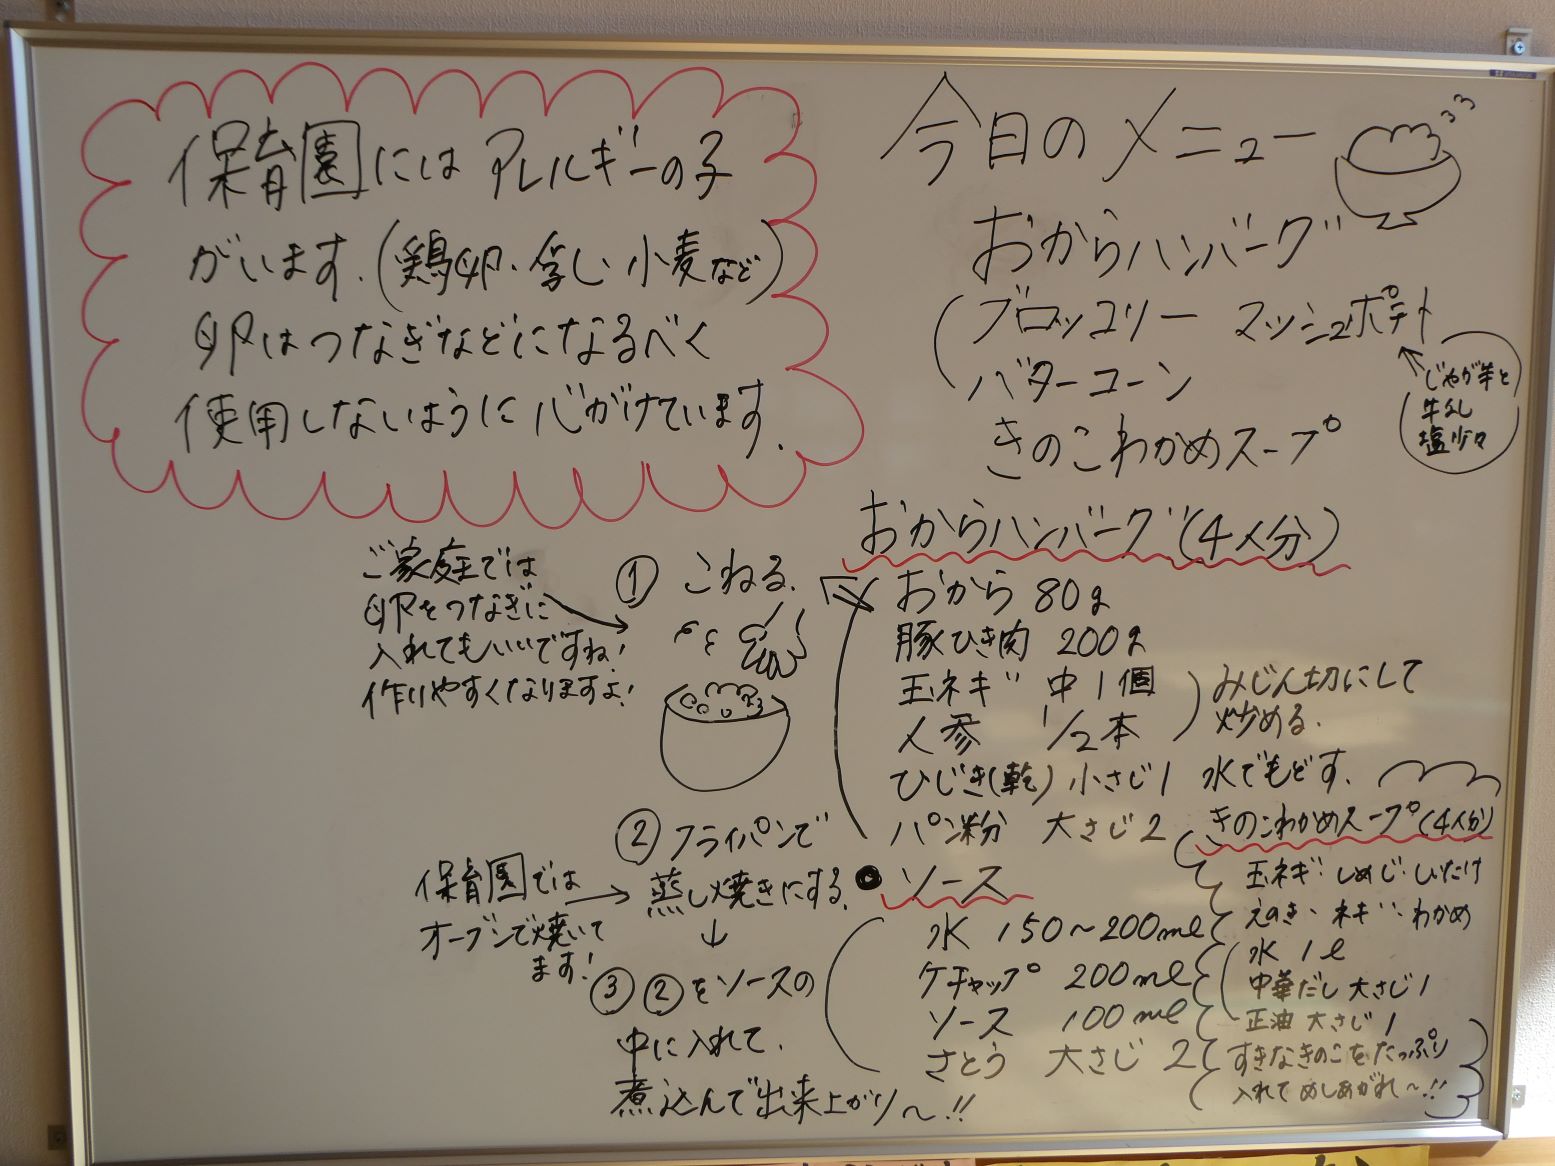 保育園にはアレルギーの子
がいます.(鶏卵・乳し小麦など)
卵はつなぎなどになるべく
使用しないように心がけています.
今日のメニュー
おからハンバーグ
ブロッコリー マッシュポテト
バターコーン
じゃが芋と
牛乳
塩少々
きのこわかめスープ
おからハンバーグ(4人分)
おから 80g
豚ひき肉 200g
玉ネギ 中1個
人参 1/2本
みじん切にして
炒める.
ひじき(乾) 小さじ1 水でもどす.
パン粉 大さじ2
ソース
水 150~200ml
ケチャップ 200ml
ソース 100ml
さとう 大さじ2
① こねる.
ご家庭では
卵をつなぎに
入れてもいいですね!
作りやすくなりますよ!
② フライパンで
蒸し焼きにする.
保育園では
オーブンで焼いて
ます!
↓
③ ②をソースの
中に入れて.
煮込んで出来上がり~!!
きのこわかめスープ(4人分)
玉ネギ・しめじ・しいたけ
えのき・ネギ・わかめ
水 1l
中華だし 大さじ1
正油 大さじ1
すきなきのこをたっぷり
入れてめしあがれ~!!